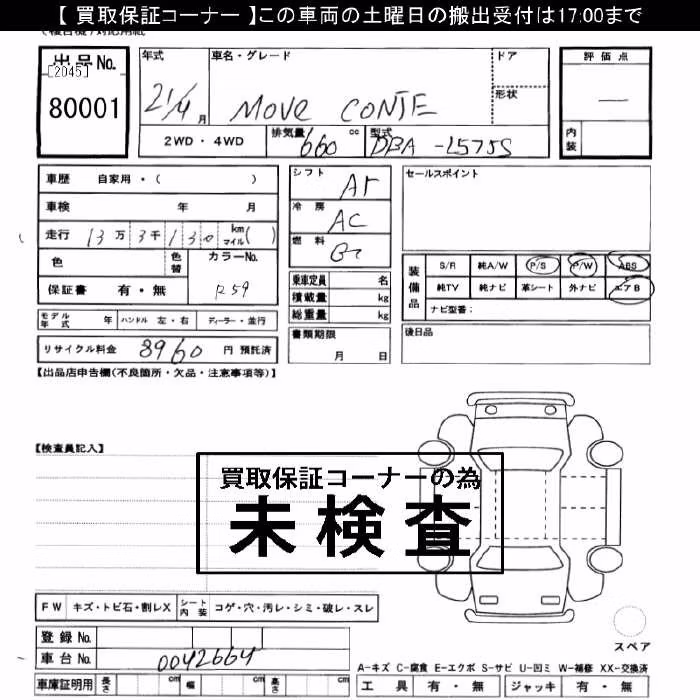 【 買取保証コーナー 】この車両の土曜日の搬出受付は17:00まで
出品No.
[2045]
80001
年式 車名・グレード ドア 評価点
21/4 月 MOVE CONTE 形状 —
2WD・4WD 排気量 660 cc 型式 DBA-L575S 内装
車歴 自家用・( ) シフト AT セールスポイント
車検 年 月 冷房 AC
走行 13万3千130 kmマイル( ) 燃料
色 色替 カラーNo. 装備品 S/R 純A/W P/S P/W ABS
保証書 有・無 R59 乗車定員 名 純TV 純ナビ 革シート 外ナビ エアB
積載量 kg ナビ型番:
モデル年式 年 ハンドル 左・右 ディーラー・並行 総重量 kg
リサイクル料金 8960 円 預託済 書類期限 月 日 後日品
【出品店申告欄(不良箇所・欠品・注意事項等)】
【検査員記入】
買取保証コーナーの為
未検査
FW キズ・トビ石・割レX シート内装 コゲ・穴・汚レ・シミ・破レ・スレ
登録No.
スペア
車台No. 0042664
A-キズ C-腐食 E-エクボ S-サビ U-凹ミ W-補修 XX-交換済
車庫証明用 長さ cm 幅 cm 高さ cm 工具 有・無 ジャッキ 有・無